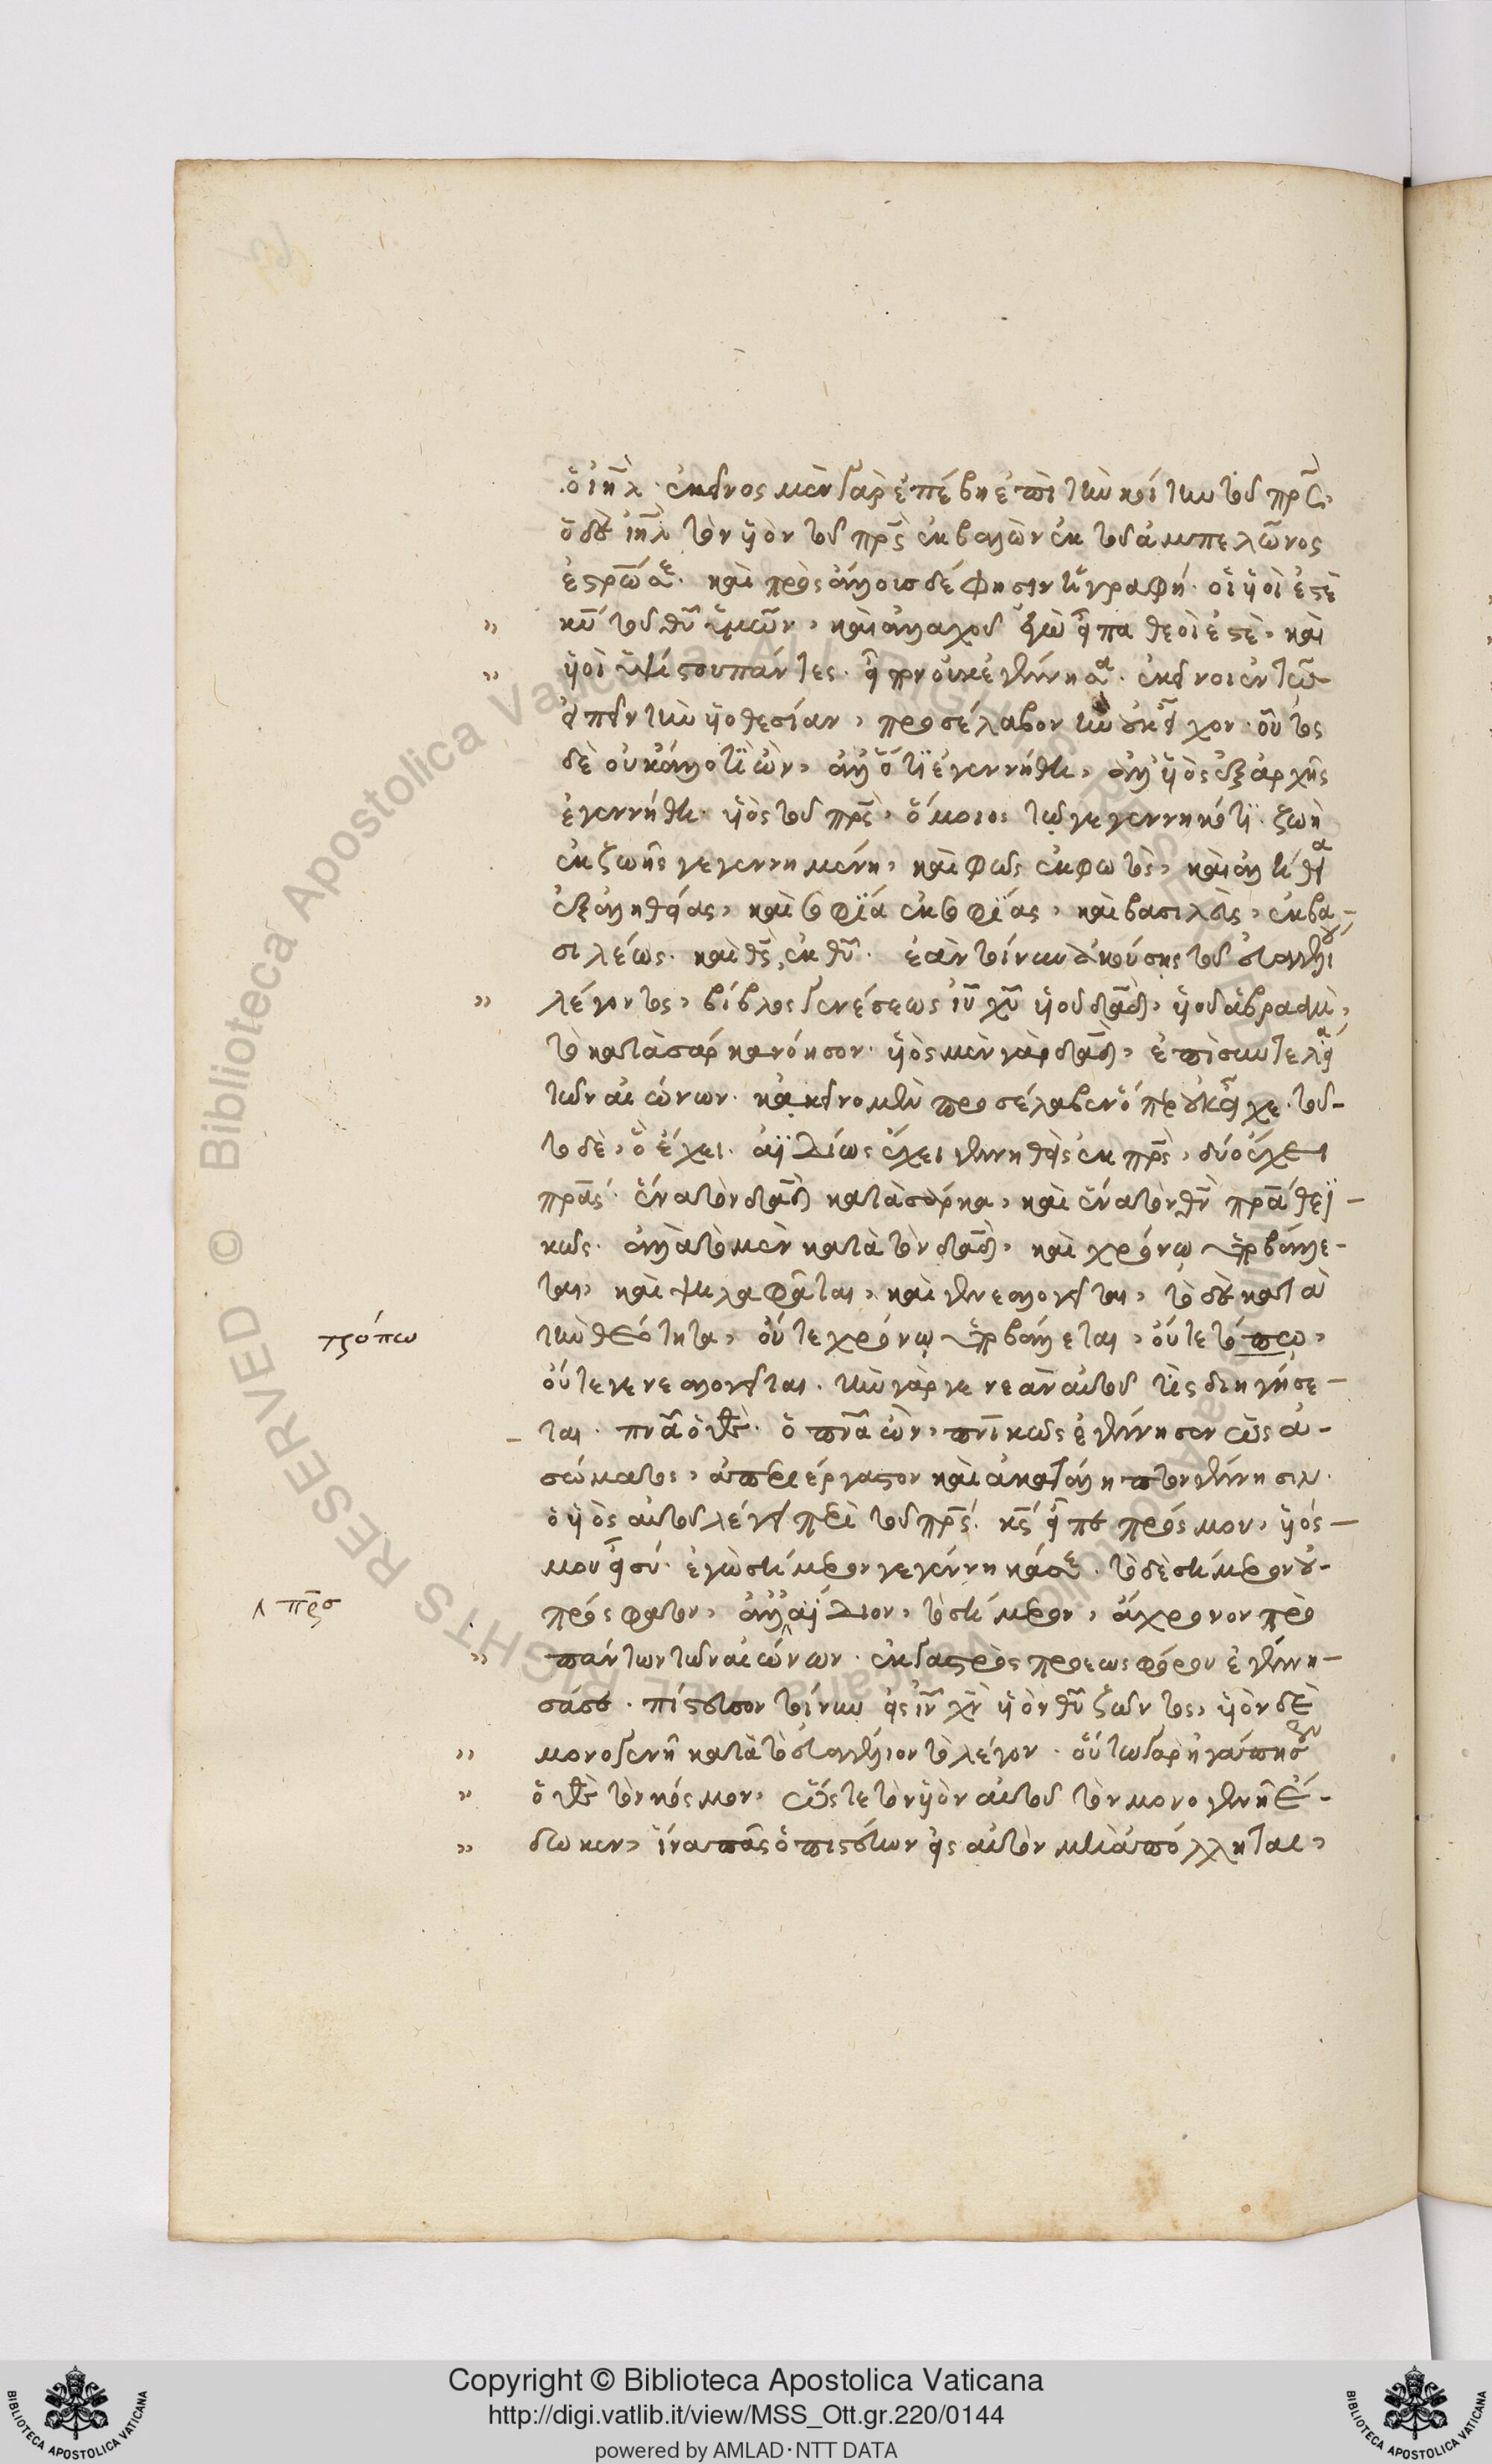 ὁ ἰηλ· ἐκεῖνος μὲν γὰρ ἐπέβη ἐπὶ τὴν κοίτην τοῦ πρς,
ὁ δὲ ἰηλ τὸν ὑὸν τοῦ πρς ἐκβαλὼν ἐκ τοῦ ἀμπελῶνος
καὶ πρὸς ἄλλους δέ φησιν ἡ γραφή· οἱ ὑοὶ ἐστὲ
κυ τοῦ θυ ὑμῶν, καὶ ἀλλαχοῦ ἐγὼ εἶπα θεοὶ ἐστὲ, καὶ
ὑοὶ ὑψίστου πάντες· εἶπον οὐκ ἐγέννησα· ἐκεῖνοι ἐν τῶ
εἰπεῖν τὴν ὑοθεσίαν, προσέλαβον ἣν οὐκ εἶχον· οὗτος
δὲ οὐκ ἄλλο τι ὢν, ἄλλο τι ἐγεννήθη, ἀλλ' ὑὸς ἐξ ἀρχῆς
ἐγεννήθη· ὑὸς τοῦ πρς, ὅμοιος τῷ γεγεννηκότι· ζωὴ
ἐκ ζωῆς γεγεννημένη, καὶ φῶς ἐκ φωτὸς, καὶ ἀλήθεια
ἐξ ἀληθείας, καὶ σοφία ἐκ σοφίας, καὶ βασιλεὺς, ἐκ βα-
σιλέως· καὶ θς, ἐκ θυ· ἐὰν τοίνυν ἀκούσῃς τοῦ εὐαγγελίου
λέγοντος, βίβλος γενέσεως ἰυ χυ ὑοῦ δαδ, ὑοῦ ἀβραάμ,
τὸ κατὰ σάρκα νόησον· ὑὸς μὲν γὰρ δαδ, ἐπὶ συντελεία
τῶν αἰώνων· κἀκεῖνο μὲν προσέλαβεν ὅπερ οὐκ εἶχε· τοῦ-
το δὲ, ὃ ἔχει· ἀϊδίως ἔχει γεννηθεὶς ἐκ πρς, δύο ἔχει
πρας· ἕνα τὸν δαδ κατὰ σάρκα, καὶ ἕνα τὸν θν πρα θεϊ-
κῶς· ἀλλὰ τὸ μὲν κατὰ τὸν δαδ, καὶ χρόνῳ ὑποβάλλε-
ται, καὶ ψηλαφᾶται, καὶ γενεαλογεῖται, τὸ δὲ κατὰ
τὴν θεότητα, οὔτε χρόνῳ ὑποβάλλεται, οὔτε τόπῳ,
τρόπω
οὔτε γενεαλογεῖται· τὴν γὰρ γενεὰν αὐτοῦ τίς διηγήσε-
ται· πνα ὁ θς· ὁ πνα ὢν, πνικῶς ἐγέννησεν ὡς ἀ-
σώματος, ἀπεριέργαστον καὶ ἀκατάληπτον γέννησιν·
ὁ ὑὸς αὐτοῦ λέγει περὶ τοῦ πρς· κς εἶπε πρός μου, ὑός
μου εἶ σύ· ἐγὼ σήμερον γεγέννηκά σε· τὸ δὲ σήμερον οὐ
πρόσφατον, ἀλλ' ἀΐδιον, τὸ σήμερον, ἄχρονον πρὸ
⋀ πρς
πάντων τῶν αἰώνων· ἐκ γαστρὸς πρὸ ἑωσφόρου ἐγέννη-
σά σε· πίστευσον τοίνυν εἰς ἰν χν ὑὸν θυ ζῶντος, ὑὸν δὲ
μονογενῆ κατὰ τὸ εὐαγγέλιον τὸ λέγον· οὕτω γὰρ ἠγάπησεν
ὁ θς τὸν κόσμον, ὥστε τὸν ὑὸν αὐτοῦ τὸν μονογενῆ ἔ-
δωκεν, ἵνα πᾶς ὁ πιστεύων εἰς αὐτὸν μὴ ἀπόλληται,
Copyright © Biblioteca Apostolica Vaticana
http://digi.vatlib.it/view/MSS_Ott.gr.220/0144
powered by AMLAD·NTT DATA